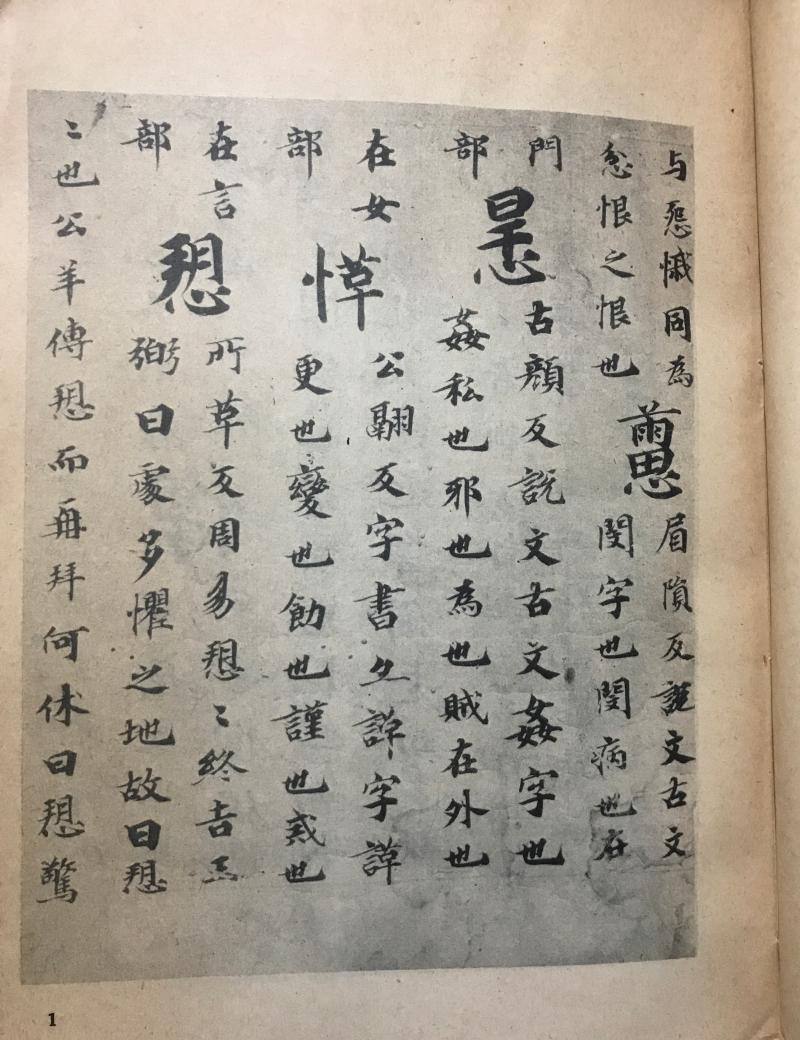 与𢙣慽同為
忿恨之恨也
眉隕反說文古文
閔字也閔病也在
門
部
𢛳
古顏反說文古文姦字也
姦私也邪也為也賊在外也
在女
部
愅
公翮反字書亦諽字諽
更也變也飭也謹也戒也
在言
部
愬
所草反周易愬〻終吉王
弼曰處多懼之地故曰愬
〻也公羊傳愬而再拜何休曰愬驚
1